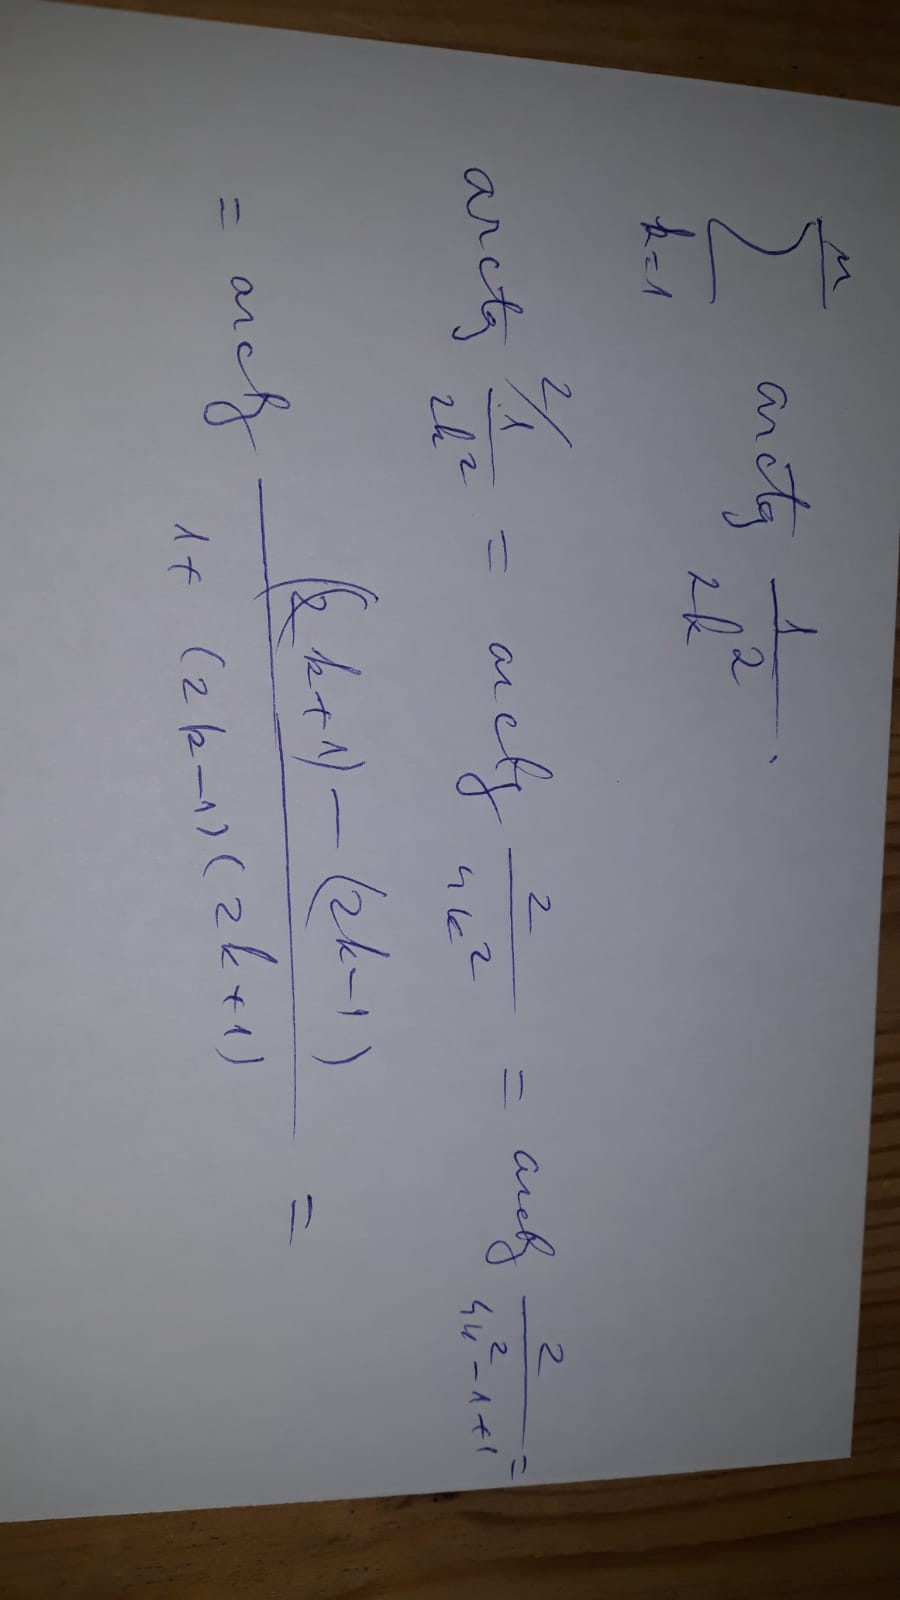 n
∑ arctg 1/2k².
k=1
arctg ²⁄ 1/2k² = arctg 2/4k² = arctg 2/4k²-1+1 =
= arctg (2k+1)-(2k-1)/1+(2k-1)(2k+1) =